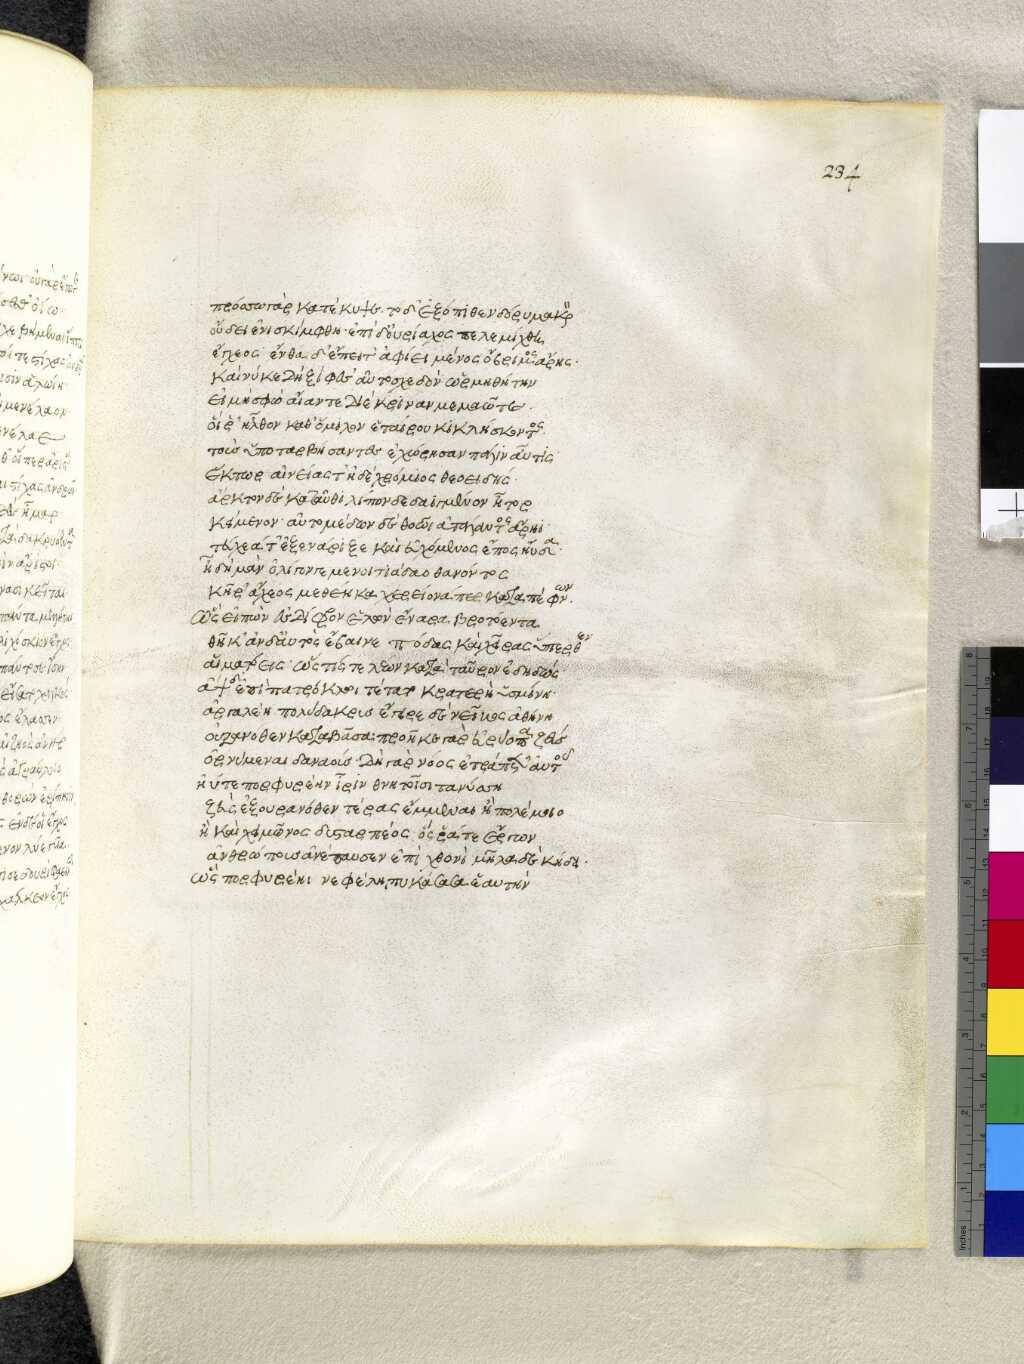 234
πρόσσω γὰρ κατέκυψε· τὸ δ' ἐξόπιθεν δόρυ μακρὸν
οὔδει ἐνισκίμφθη· ἐπὶ δ' οὐρίαχος πελεμίχθη
ἔγχεος· ἔνθα δ' ἔπειτ' ἀφίει μένος ὄβριμος ἄρης·
Καί νύ κε δὴ ξιφέεσσ' αὐτοσχεδὸν ὡρμηθήτην
εἰ μή σφω' αἴαντε διέκριναν μεμαῶτε·
οἵ ῥ' ἦλθον καθ' ὅμιλον ἑταίρου κικλήσκοντος·
τοὺς ὑποταρβήσαντες ἐχώρησαν πάλιν αὖτις
ἕκτωρ αἰνείας τ' ἠδὲ χρόμιος θεοειδής·
ἄρητον δὲ κατ' αὖθι λίπον δεδαϊγμένον ἦτορ
κείμενον· αὐτομέδων δὲ θοῶι ἀτάλαντος ἄρηι
τεύχεά τ' ἐξενάριξε καὶ εὐχόμενος ἔπος ηὔδα·
ἦ δὴ μὰν ὀλίγον γε μενοιτιάδαο θανόντος
κῆρ ἄχεος μεθέηκα χερείονά περ καταπέφνων·
ὣς εἰπὼν ἐς δίφρον ἑλὼν ἔναρα βροτόεντα
θῆκ' ἂν δ' αὐτὸς ἔβαινε πόδας καὶ χεῖρας ὕπερθεν
αἱματόεις· ὥς τίς τε λέων κατὰ ταῦρον ἐδηδώς·
ἂψ δ' ἐπὶ πατρόκλωι τέτατο κρατερὴ ὑσμίνη·
ἀργαλέη πολύδακρυς ἔγειρε δὲ νεῖκος ἀθήνη
οὐρανόθεν καταβᾶσα· προῆκε γὰρ εὐρύοπα ζεὺς
ὀρνύμεναι δαναούς· δὴ γὰρ νόος ἐτράπετ' αὐτοῦ
ἠΰτε πορφυρέην ἶριν θνητοῖσι τανύσση
ζεὺς ἐξ οὐρανόθεν τέρας ἔμμεναι ἢ πολέμοιο
ἢ καὶ χειμῶνος δυσθαλπέος ὅς ῥά τε ἔργων
ἀνθρώπους ἀνέπαυσεν ἐπὶ χθονὶ μῆλα δὲ κήδει·
ὣς πορφυρέηι νεφέλη πυκάσασα ἓ αυτὴν